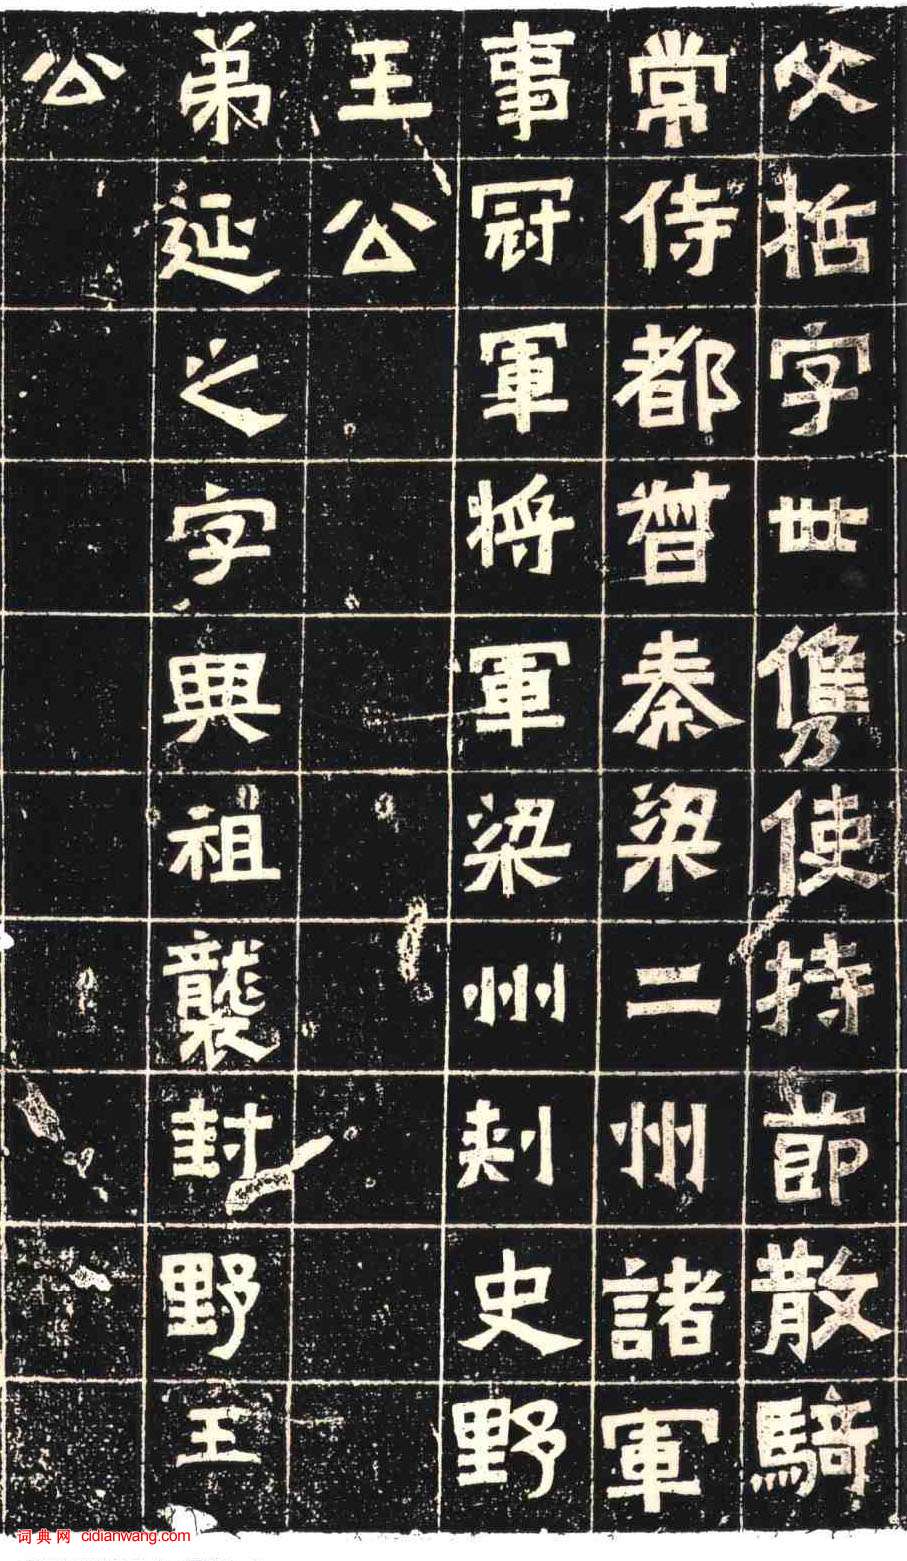 父括字世儁使持節散騎
常侍都督秦梁二州諸軍
事冠軍將軍梁州刺史野
王公
弟延之字興祖襲封野王
公
词典网 cidianwang.com